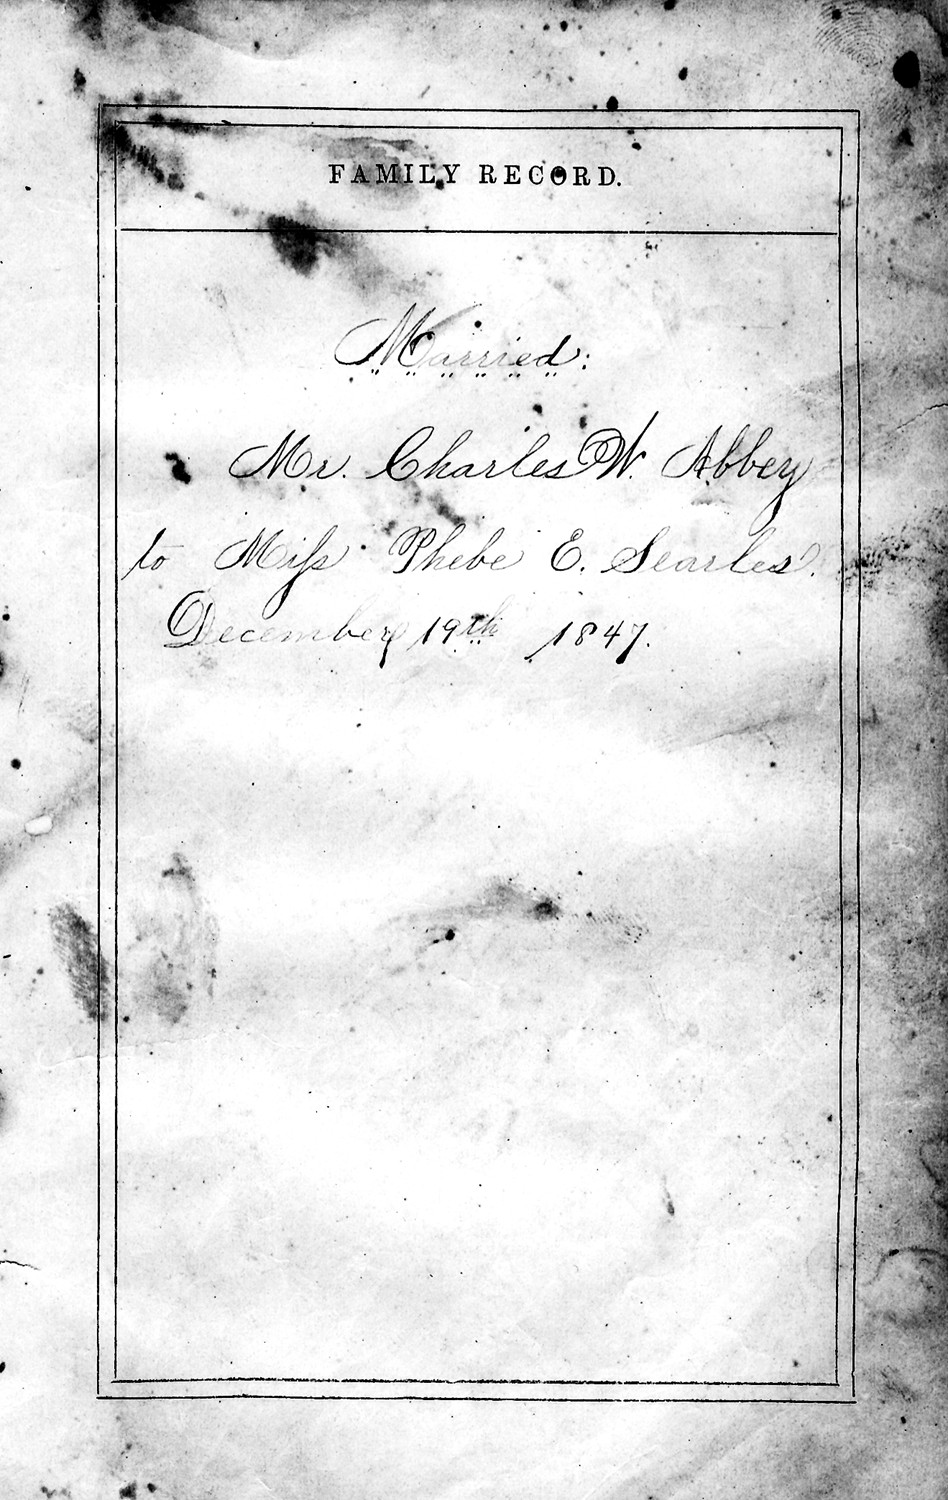 FAMILY RECORD.
Married:
Mr. Charles W. Abbey
to Miſs Phebe E. Searles.
December 19th 1847.